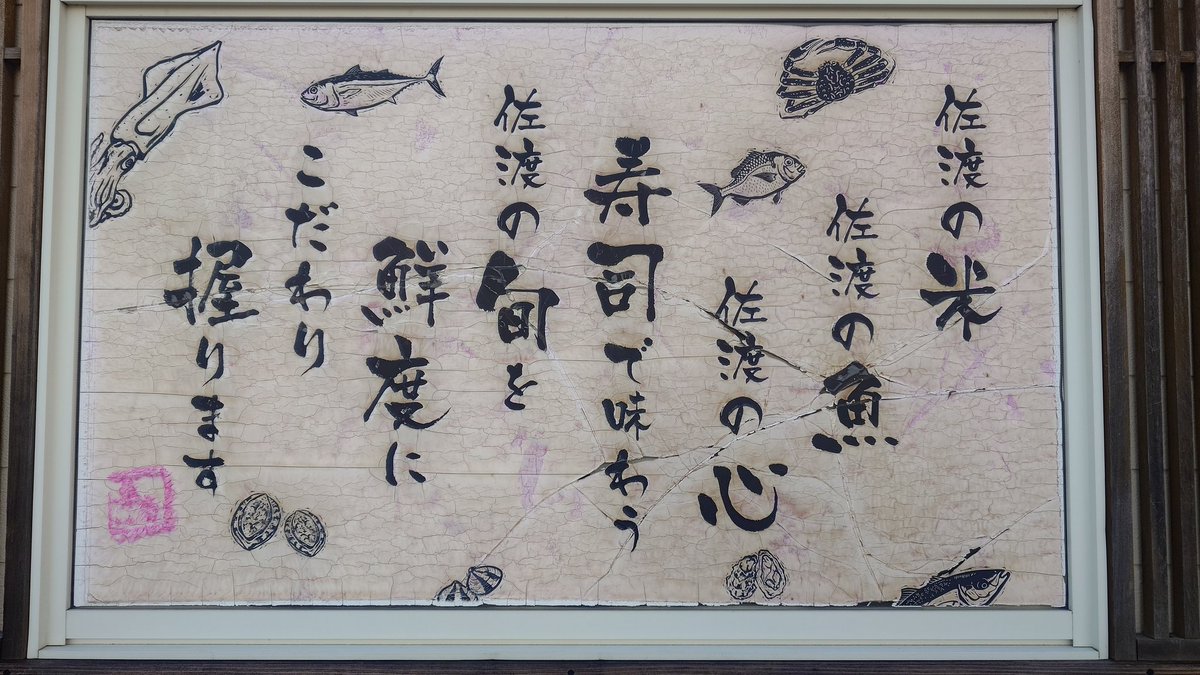 佐渡の米
佐渡の魚
佐渡の心
寿司で味わう
佐渡の旬を
鮮度に
こだわり
握ります